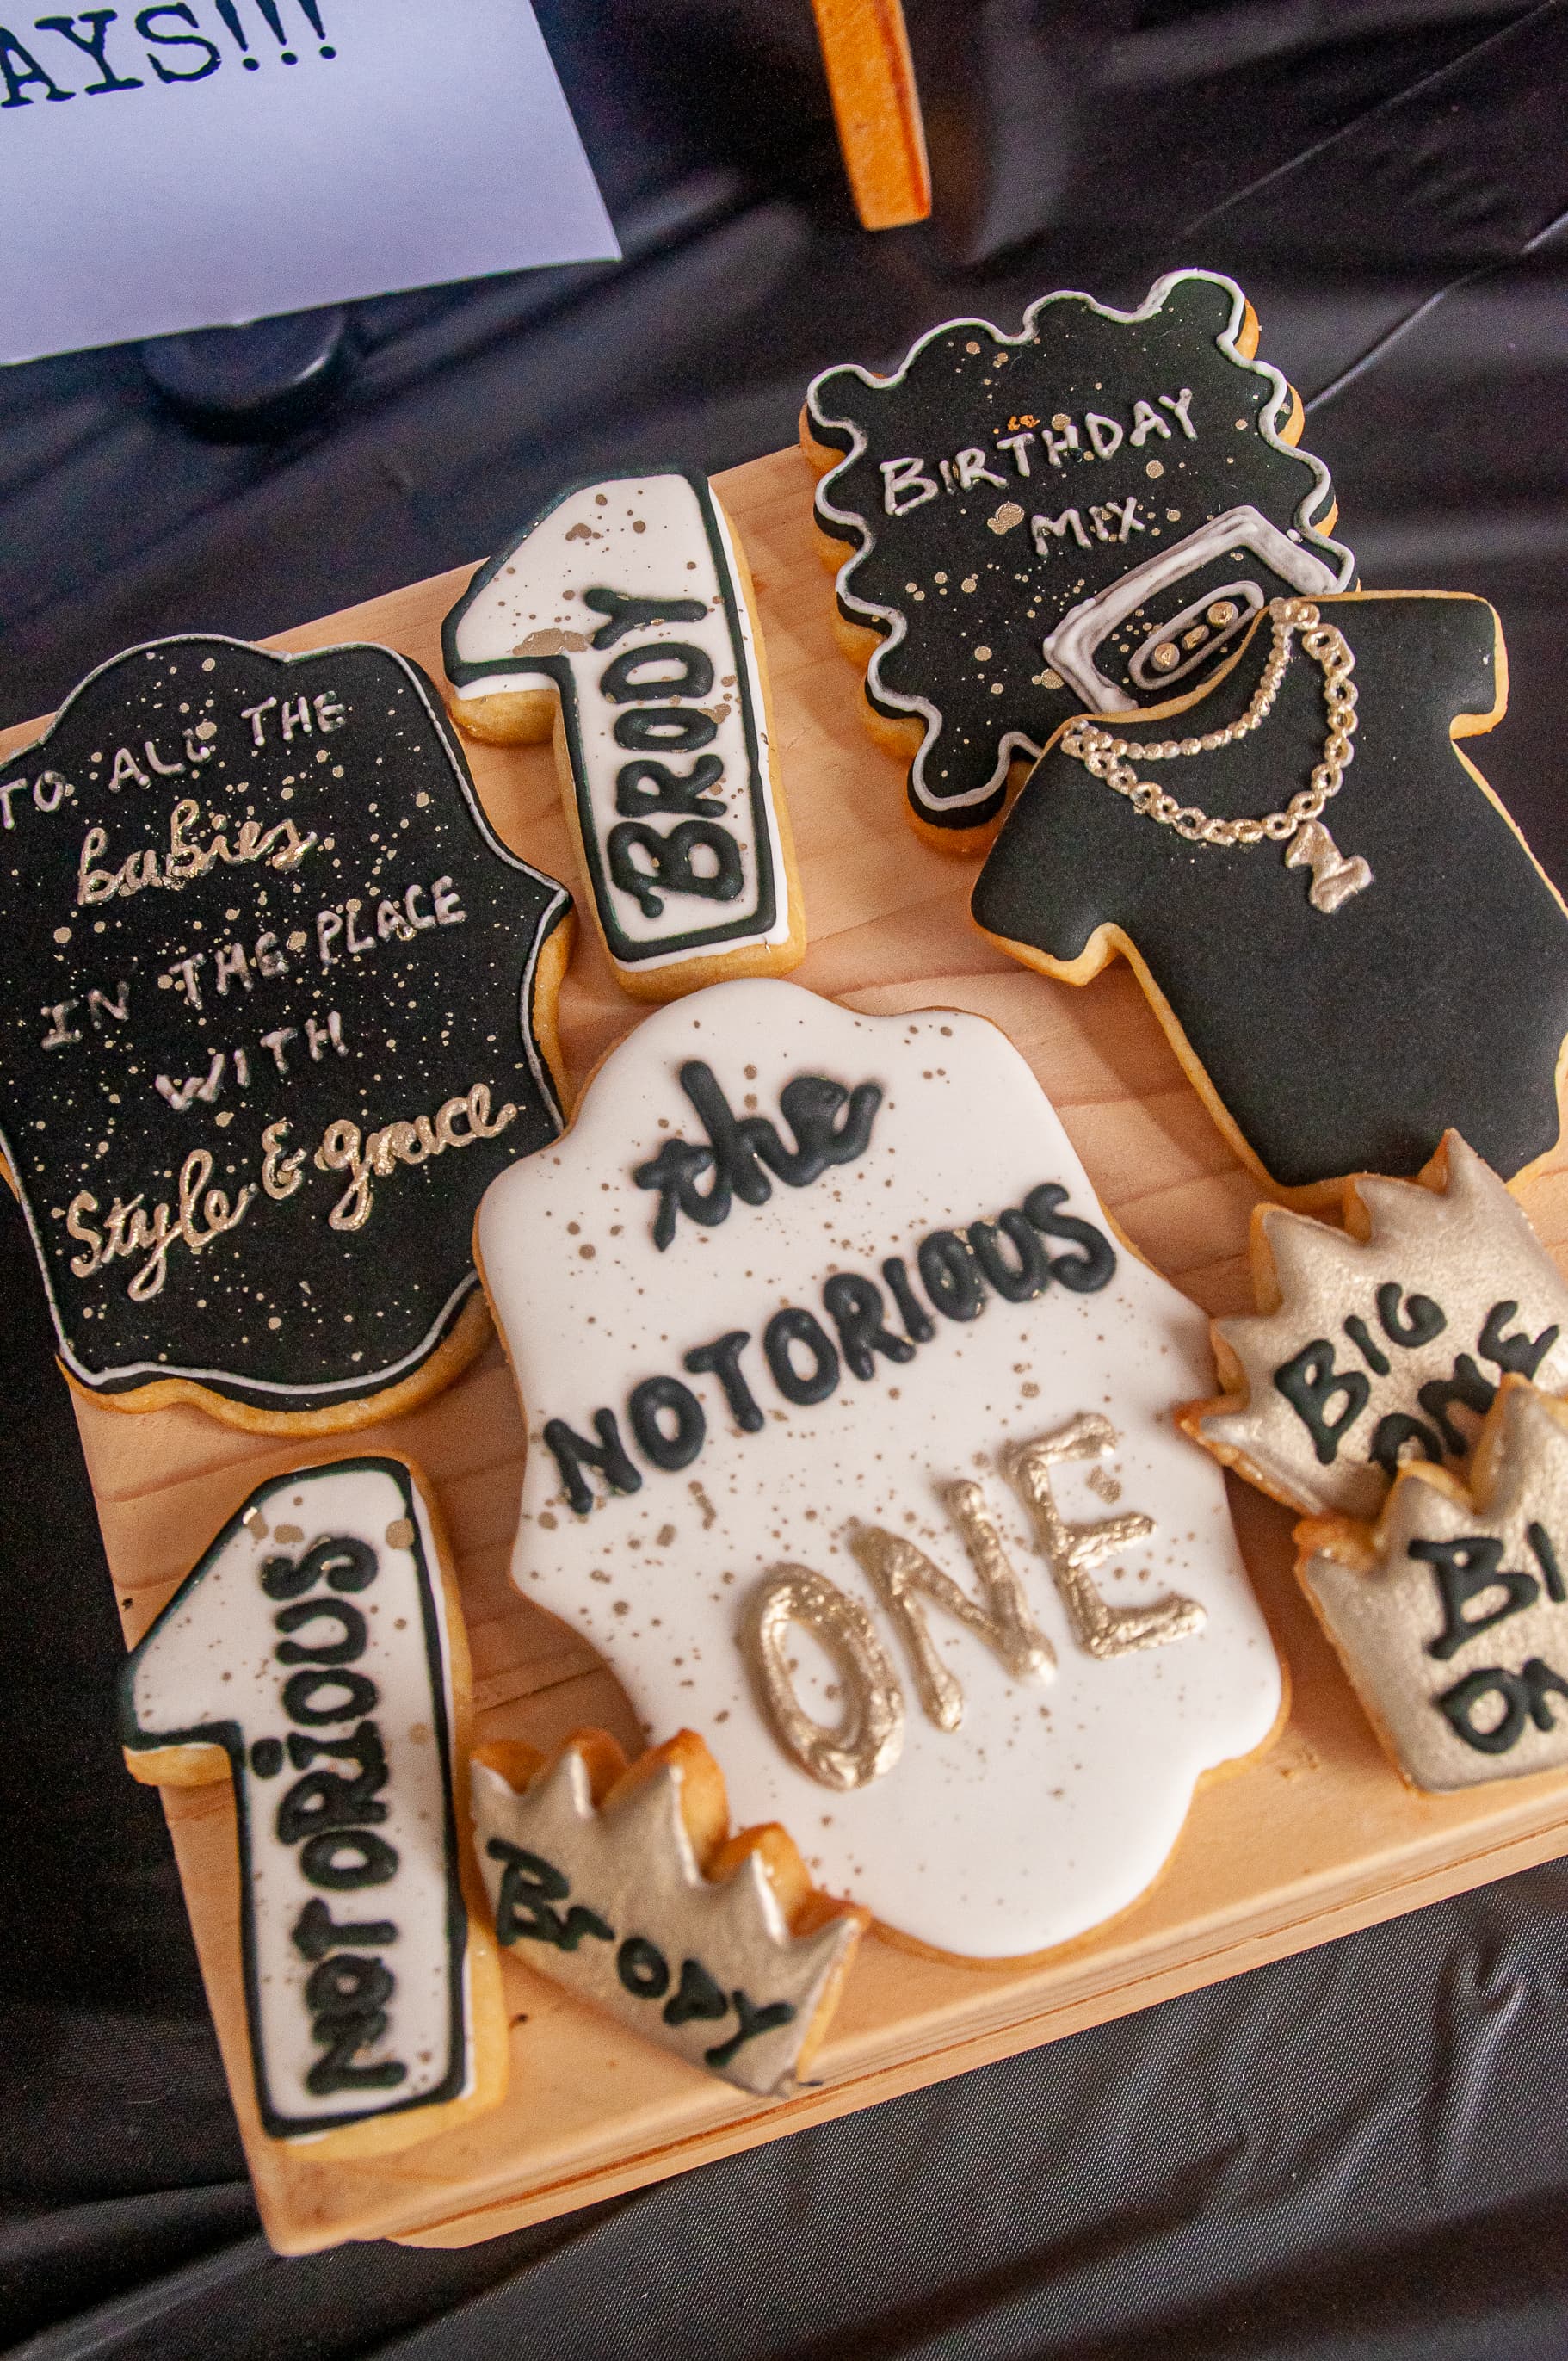 AYS!!!
BIRTHDAY
MIX
BRODY
TO ALL THE
babies
IN THE PLACE
WITH
Style & grace
N
the
NOTORIOUS
ONE
BIG
ONE
BI
ON
NOTORIOUS
BRODY